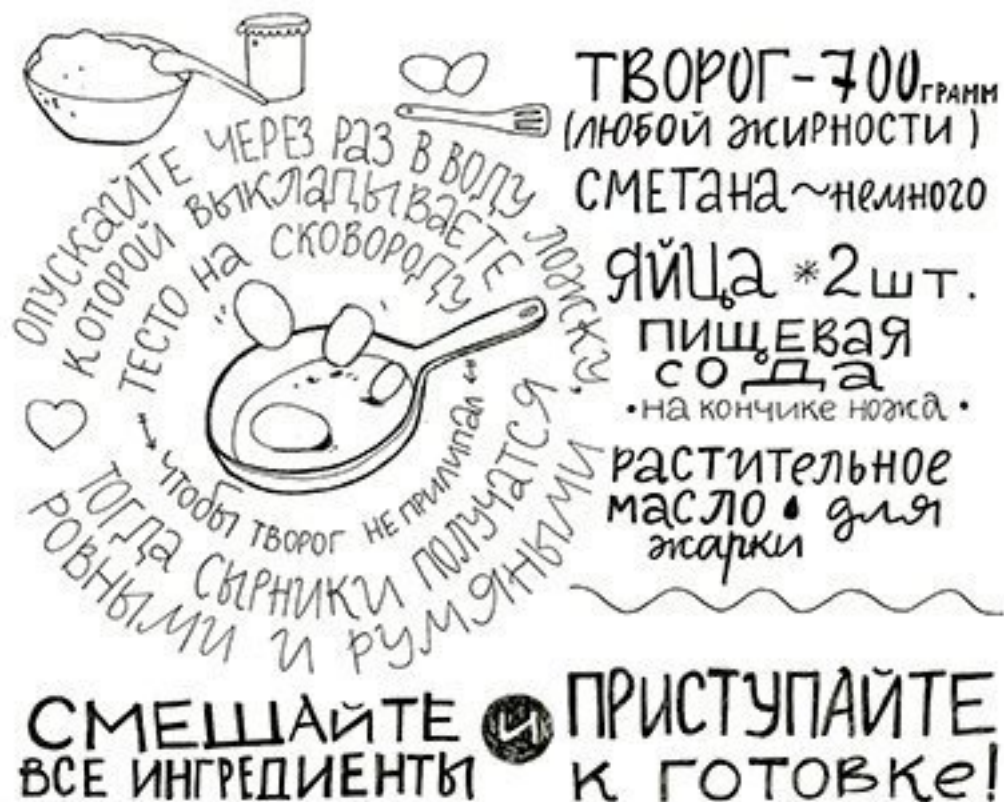 ТВОРОГ-700 ГРАММ
(ЛЮБОЙ ЖИРНОСТИ)
СМЕТАНА ~ немного
ЯЙЦА * 2 шт.
ПИЩЕВАЯ
СОДА
• на кончике ножа •
растительное
масло для
жарки
ОПУСКАЙТЕ ЧЕРЕЗ РАЗ В ВОДУ ЛОЖКУ,
КОТОРОЙ ВЫКЛАДЫВАЕТЕ
ТЕСТО НА СКОВОРОДУ
чтобы ТВОРОГ НЕ ПРИЛИПАЛ
ТОГДА СЫРНИКИ ПОЛУЧАТСЯ
РОВНЫМИ И РУМЯНЫМИ
СМЕШАЙТЕ
ВСЕ ИНГРЕДИЕНТЫ
И
ПРИСТУПАЙТЕ
К ГОТОВКе!